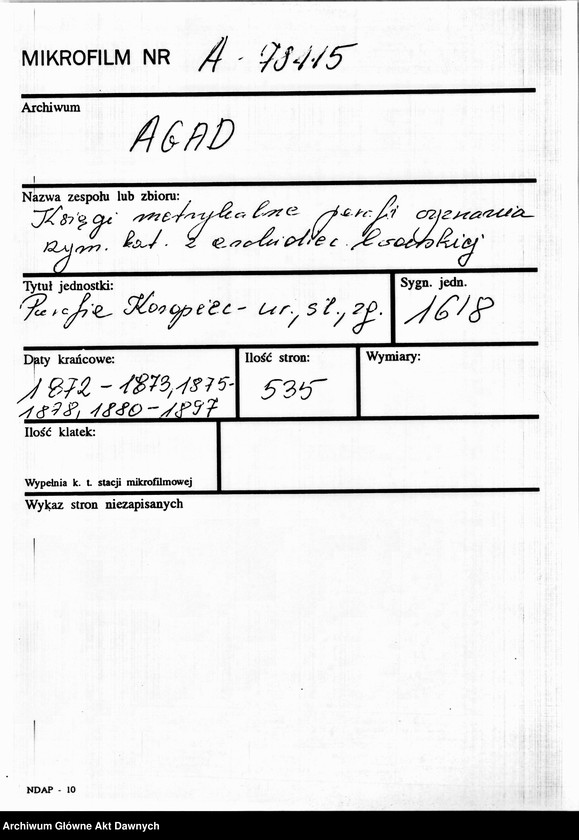 MIKROFILM NR A - 78415
Archiwum
AGAD
Nazwa zespołu lub zbioru:
Księgi metrykalne parafi wyznania
rzym. kat. z archidiec. lwowskiej
Tytuł jednostki:
Parafie Koropiec - ur., śl., zg.
Sygn. jedn.
1618
Daty krańcowe:
1872 - 1873, 1875-
1878, 1880 - 1897
Ilość stron:
535
Wymiary:
Ilość klatek:
Wypełnia k. t. stacji mikrofilmowej
Wykaz stron niezapisanych
NDAP - 10
Archiwum Główne Akt Dawnych